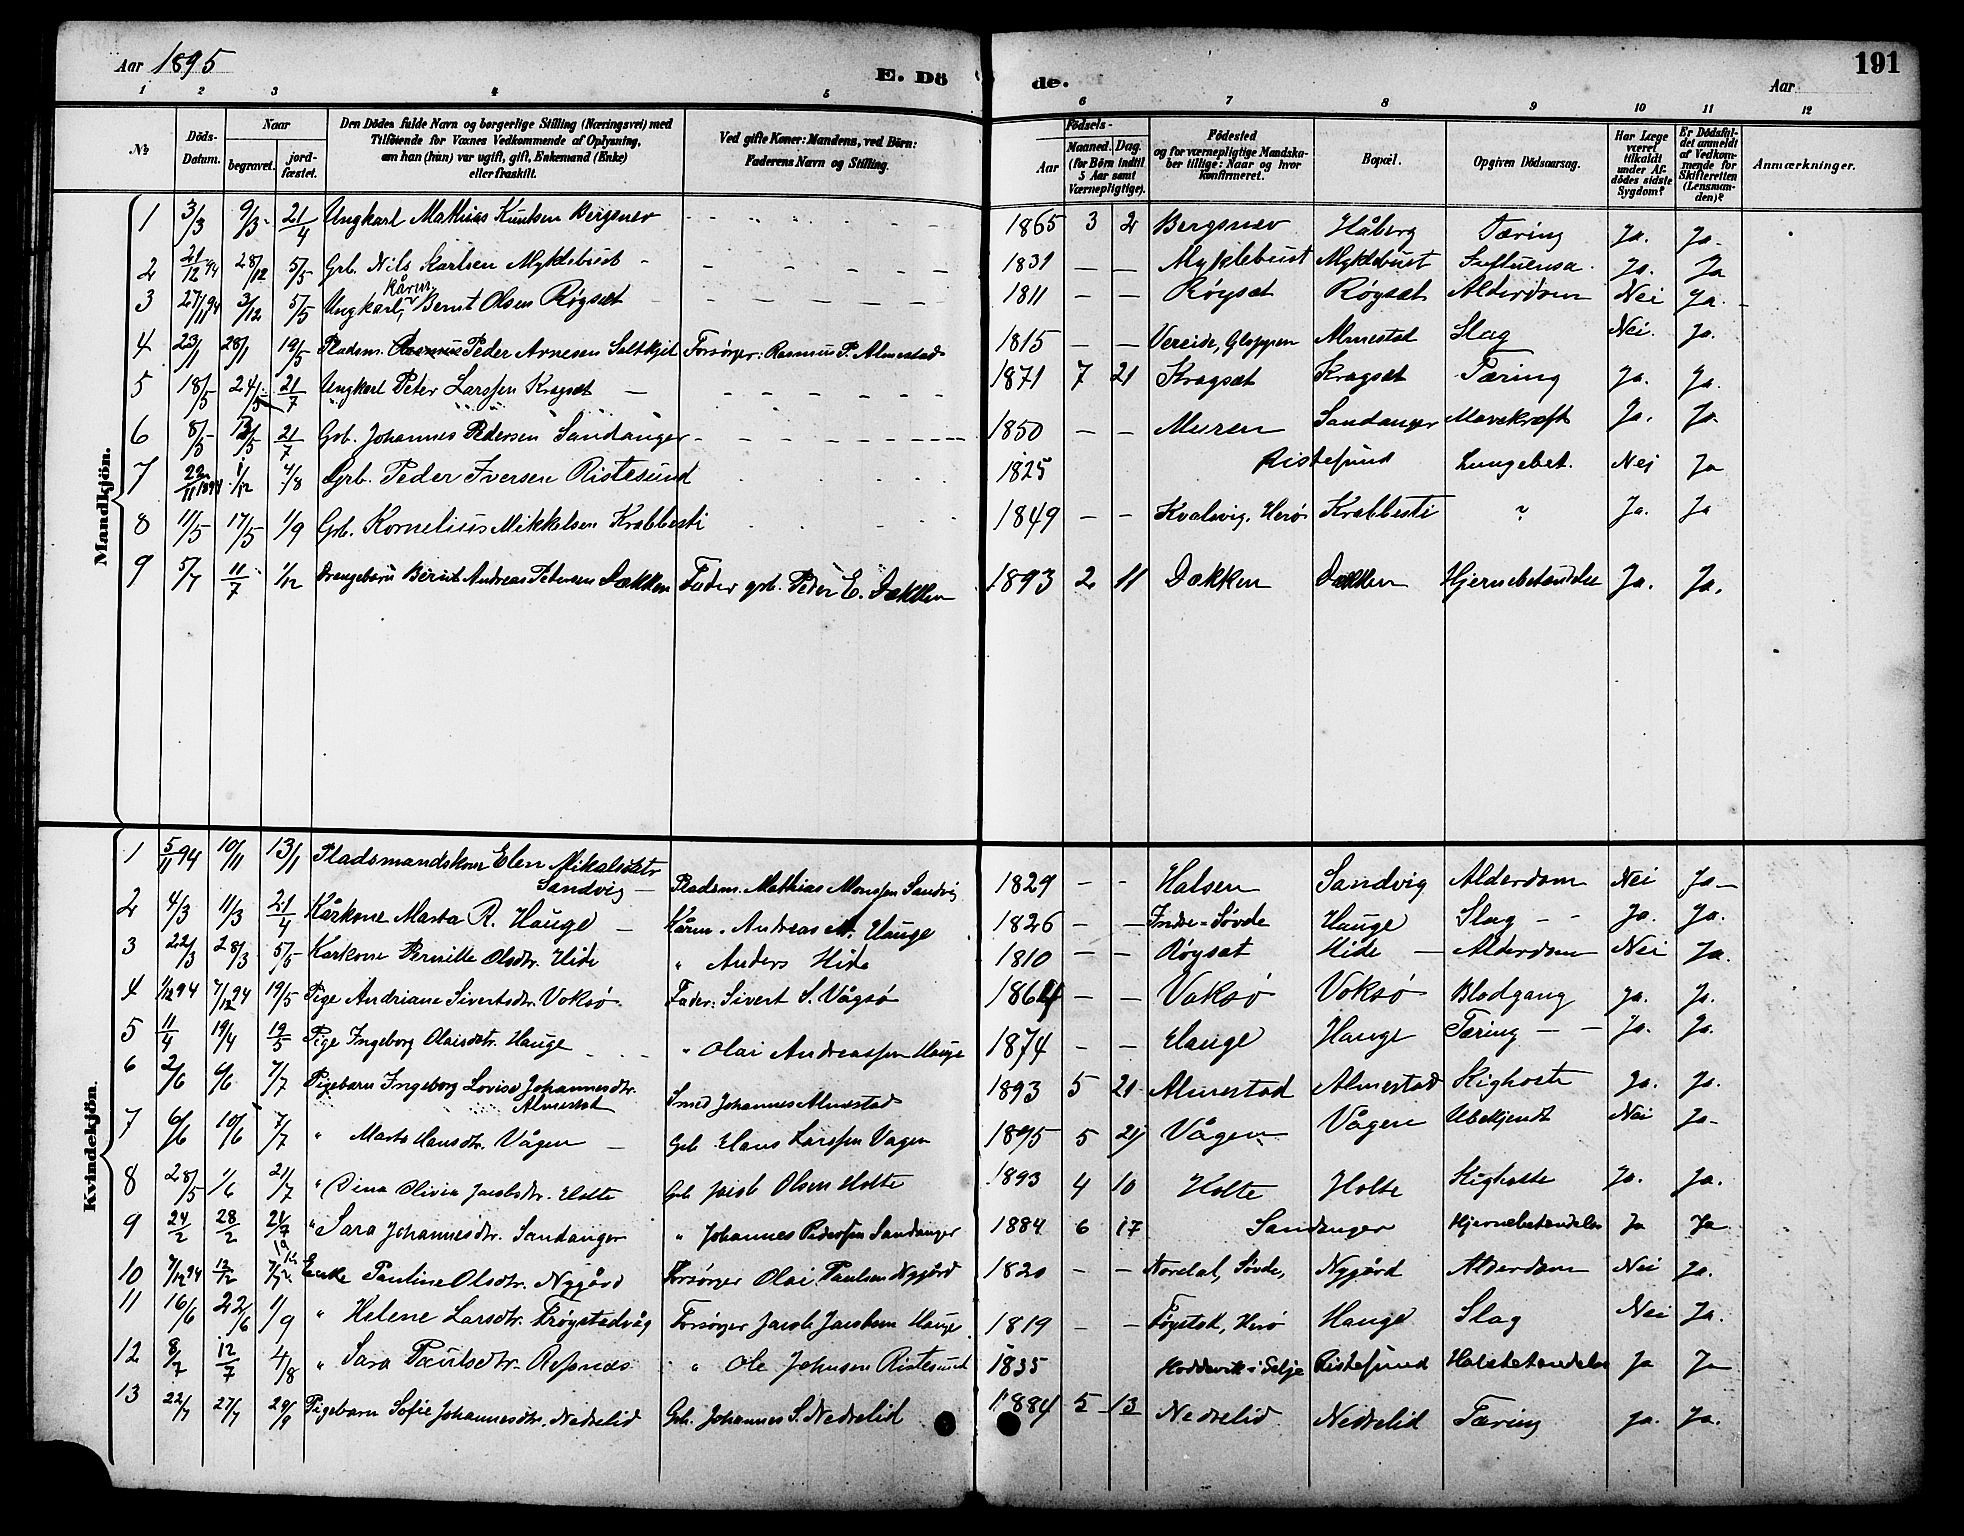 Aar 1895 E. Dö de. Aar 191
1 2 3 4 5 6 7 8 9 10 11 12
No
Döds-Datum.
Naar
begravet.
jord-fæstet.
Den Dödes fulde Navn og borgerlige Stilling (Næringsvei) med Tilföiende for Voxnes Vedkommende af Oplysning, om han (hun) var ugift, gift, Enkemand (Enke) eller fraskilt.
Ved gifte Koner: Mandens, ved Börn: Faderens Navn og Stilling.
Födsels-
Aar
Maaned. Dag. (for Börn indtil 5 Aar samt Værnepligtige).
Födested og for værnepligtige Mandskaber tillige: Naar og hvor Konfirmeret.
Bopæl.
Opgiven Dödsaarsag.
Har Læge været tilkaldt under Afdödes sidste Sygdom?
Er Dödsfaldet anmeldt af Vedkommende for Skifteretten (Lensmanden)?
Anmærkninger.
Mandkjön.
1 3/3 9/3 21/4 Ungkarl Mathias Knutsen Bergsnev 1865 3 2 Bergsnev Håberg Tæring Ja. Ja.
2 21/12 94 28/12 5/5 Grb. Nils Karlsen Myklebust 1831 — — Myklebust Myklebust Influensa Ja. Ja
3 27/11 94 3/12 5/5 Ungkarl, Kårm. Bernt Olsen Røgsæt 1811 — — Røysæt Røysæt Alderdom Nei Ja.
4 23/1 28/1 19/5 Pladsm. Rasmus Peder Arnesen Saltkjel Forsørger: Rasmus P. Almestad 1815 — — Vereide, Gloppen Almestad Slag Nei. Ja.
5 18/5 24/5 21/7 Ungkarl Peter Larssen Kragsæt 1871 7 21 Kragsæt Kragsæt Tæring Ja. Ja.
6 8/5 13/5 21/7 Grb. Johannes Pedersen Sandanger 1850 — — Muren Sandanger Mavekræft Ja. Ja.
7 22/11 1894 1/12 4/8 Grb. Peder Iversen Ristesund 1825 Ristesund Lungebet. Nei Ja
8 11/5 17/5 1/9 Grb. Kornelius Mikkelsen Krabbesti 1849 — — Kvalsvig, Herø Krabbesti ? Ja. Ja
9 5/7 11/7 1/12 Drengebarn Bernt Andreas Petersen Dækken Fader grb. Peder E. Dækken 1893 2 11 Dækken Dækken Hjernebetændelse Ja. Ja.
Kvindekjön.
1 5/11 94 10/11 13/1 Pladsmandskone Elen Mikalsdtr Sandvig — Pladsm. Mathias Monssen Sandvig 1829 — — Halsen Sandvig Alderdom Nei Ja —
2 4/3 11/3 21/4 Kårkone Marta R. Hauge — Kårm. Andreas M. Hauge 1826 — — Indre-Søvde Hauge Slag — — Ja. Ja.
3 22/3 28/3 5/5 Karkone Pernille Olsdtr. Hide " Anders Hide 1810 — — Røysæt Hide — Alderdom Nei Ja.
4 1/12 94 7/12 94 19/5 Pige Andriane Sivertsdtr. Voksø Fader: Sivert S. Vågsø 1864 — — Voksø Voksø Blodgang Ja. Ja.
5 11/4 19/4 19/5 Pige Ingeborg Olaisdtr. Hauge " Olai Andreassen Hauge 1874 — — Hauge Hauge Tæring — — Ja. Ja.
6 2/6 6/6 7/7 Pigebarn Ingeborg Lovise Johannesdtr. Almestad Smed Johannes Almestad 1893 5 21 Almestad Almestad Kighoste Ja. Ja.
7 6/6 10/6 7/7 " Marta Hansdtr. Vågen — Grb Hans Larssen Vagen 1895 5 29 Vågen Vågen Ubekjendt Nei Ja-
8 28/5 1/6 21/7 " Dina Olivia Jacobsdtr. Holte Grb Jacob Olsen Holte 1893 4 10 Holte Holte Kighoste Ja. Ja.
9 24/2 28/2 21/7 " Sara Johannesdtr. Sandanger " Johannes Pedersen Sandanger 1884 6 17 Sandanger Hjernebetændelse Ja Ja
10 7/12 94 12/12 7/7 Enke Pauline Olsdtr. Nygård Forsørger Olai Paulsen Nygård 1820 — — Nordal, Søvde, Nygård Alderdom Nei Ja.
11 16/6 22/6 1/9 " Helene Larsdtr. Frøystadvåg Forsørger Jacob Jacobsen Hauge 1819 — — Frøystad, Herø Hauge Slag Nei Ja.
12 8/7 12/7 4/8 " Sara Paulsdtr. Refsnæs " Ole Johnsen Ristesund 1835 Hoddevik i Selje Ristesund Halsbetændelse Ja Ja
13 22/7 27/7 29/9 Pigebarn Sofie Johannesdtr. Nedrelid Grb. Johannes S. Nedrelid 1884 5 13 Nedrelid Nedrelid Tæring Ja. Ja.